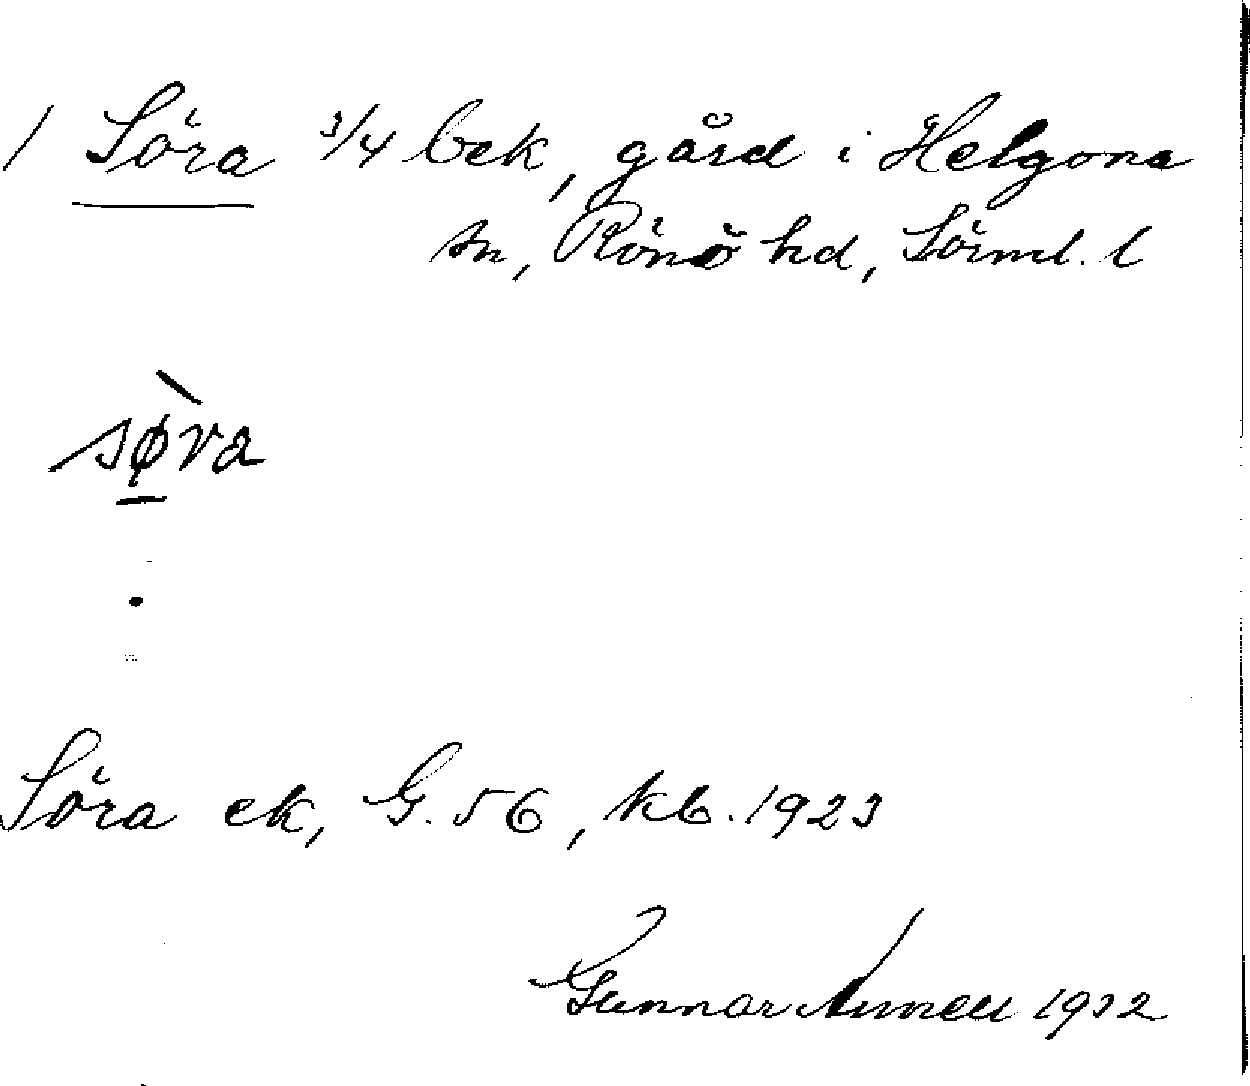 1 Söra 3/4 bek, gård i Helgona
sn, Rönö hd, Sörml. l
sø̀ra
Söra ek, G. 56, kb. 1923
Gunnar 1932